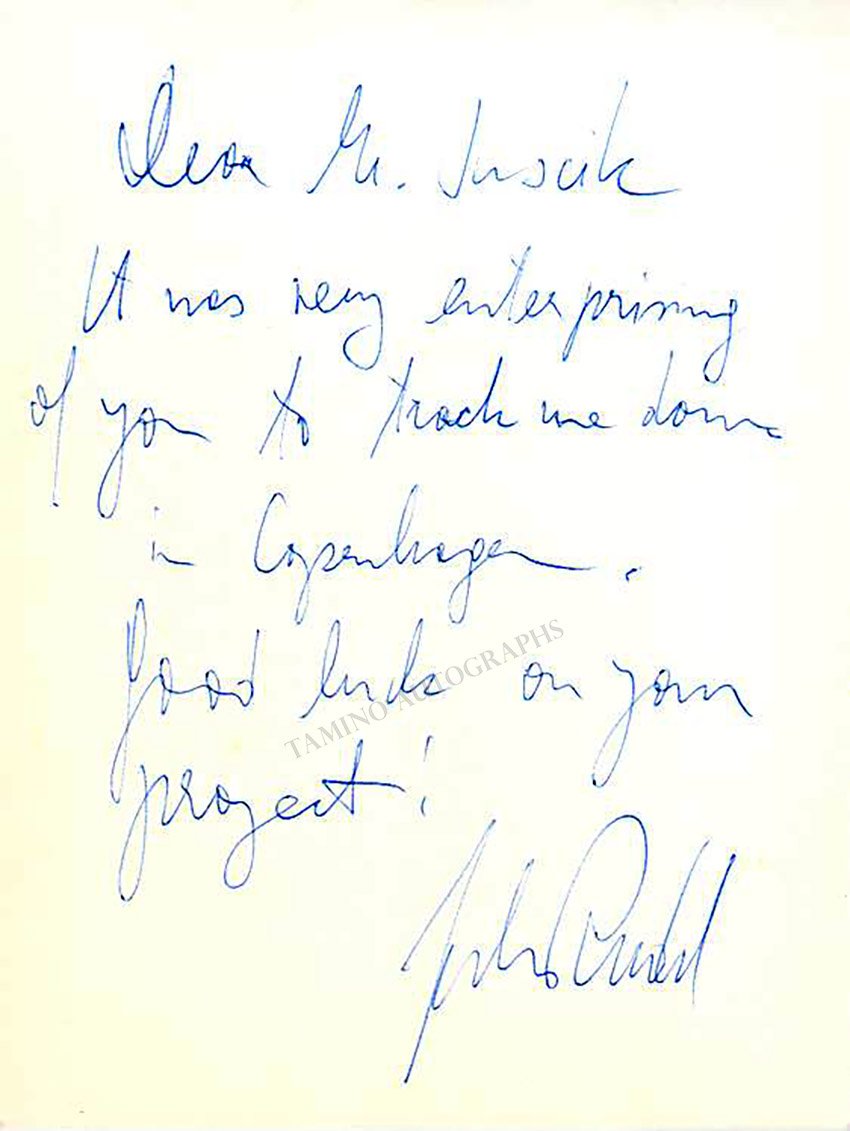 Dear Mr. Juscik
It was very enterprising
of you to track me down
in Copenhagen.
Good luck on your
TAMINO AUTOGRAPHS
project!
Julius Rudel